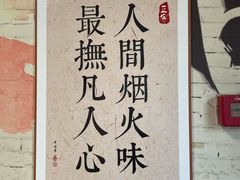 人間烟火味
最撫凡人心